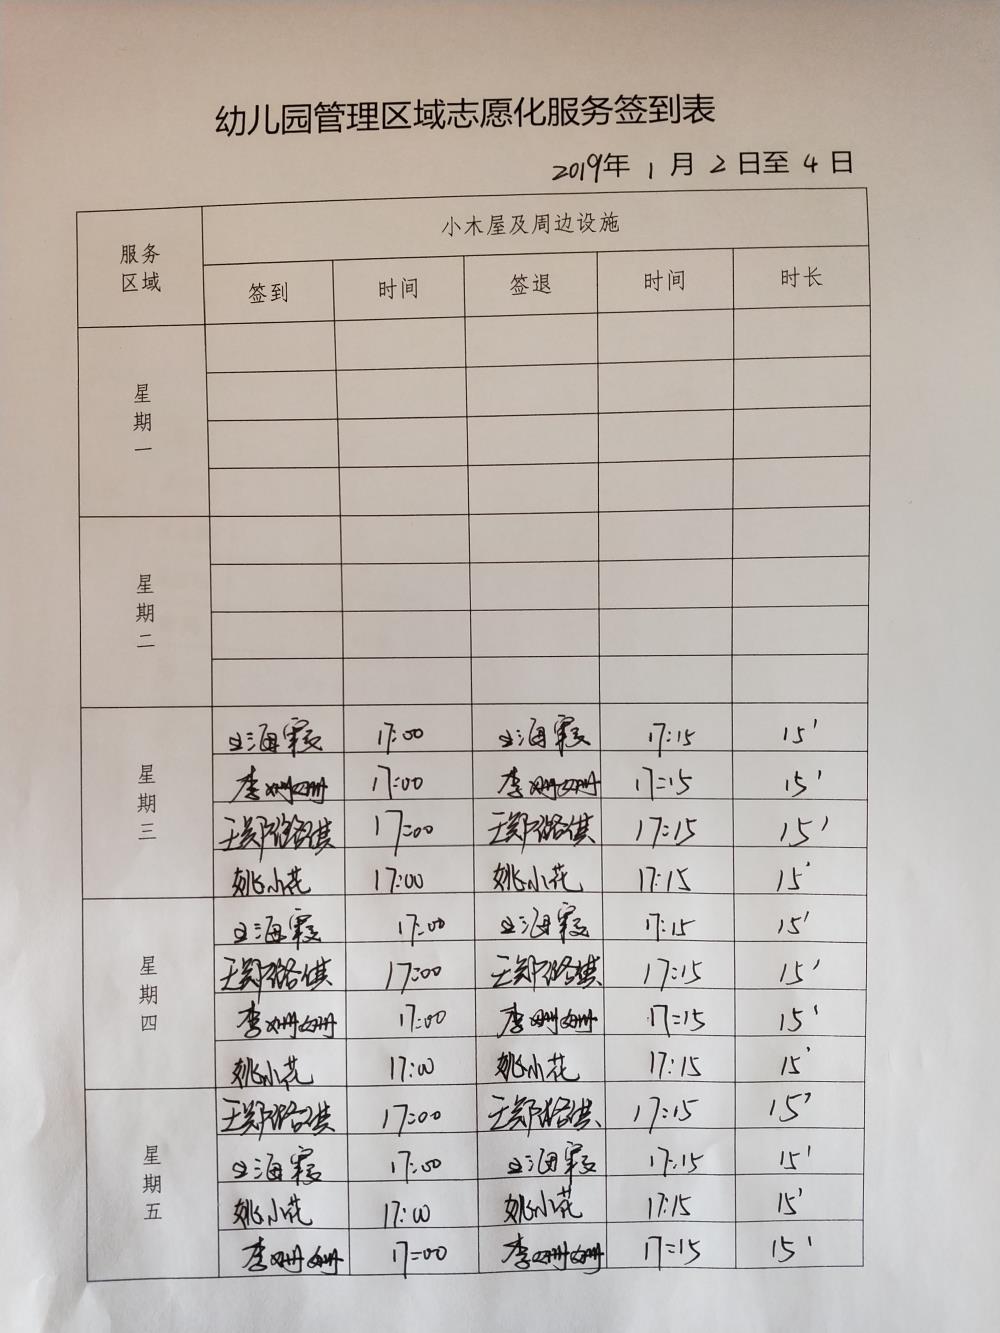 幼儿园管理区域志愿化服务签到表
2019年 1 月 2 日至 4 日
服务区域 小木屋及周边设施
签到 时间 签退 时间 时长
星期一
星期二
星期三
海霞 17:00 海霞 17:15 15'
李姗姗 17:00 李姗姗 17:15 15'
王郑 17:00 王郑 17:15 15'
姚小花 17:00 姚小花 17:15 15'
星期四
海霞 17:00 海霞 17:15 15'
王郑 17:00 王郑 17:15 15'
李姗姗 17:00 李姗姗 17:15 15'
姚小花 17:00 姚小花 17:15 15'
星期五
王郑 17:00 王郑 17:15 15'
海霞 17:00 海霞 17:15 15'
姚小花 17:00 姚小花 17:15 15'
李姗姗 17:00 李姗姗 17:15 15'